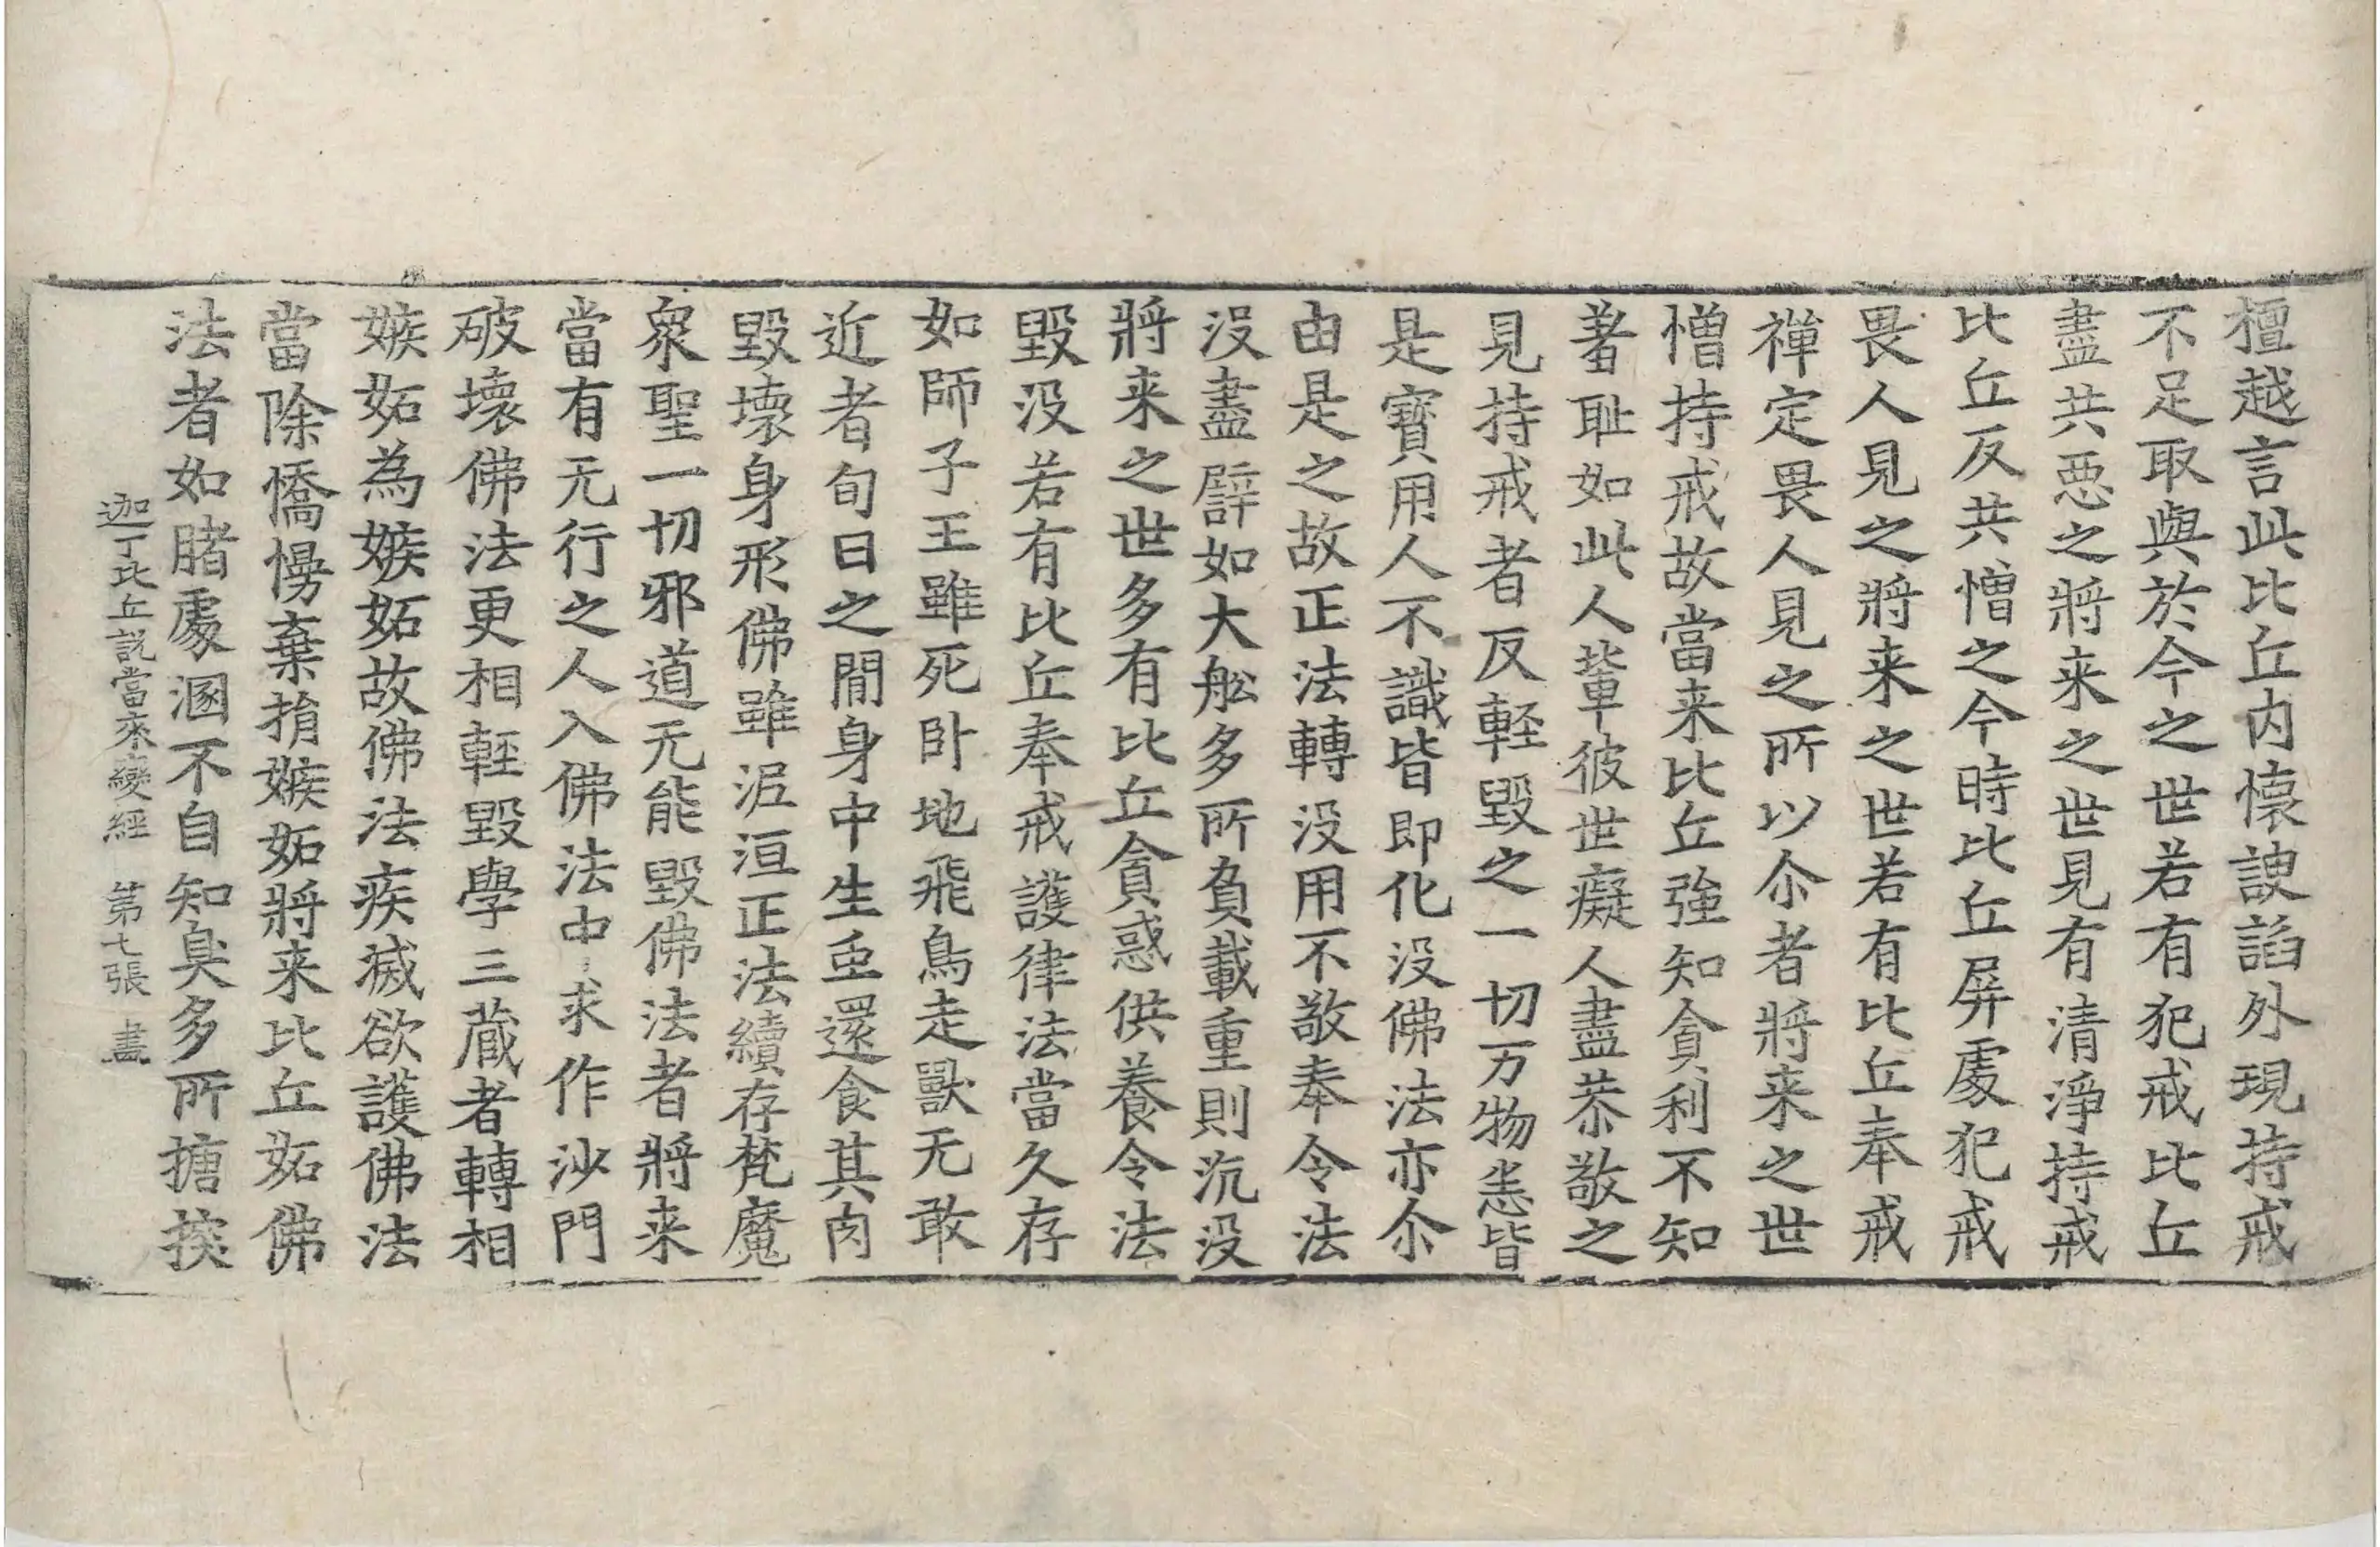 檀越言此比丘内懷諛諂外現持戒
不足取與於今之世若有犯戒比丘
盡共惡之將来之世見有清淨持戒
比丘反共憎之今時比丘屏處犯戒
畏人見之將来之世若有比丘奉戒
禪定畏人見之所以尒者將来之世
憎持戒故當来比丘強知貪利不知
著耻如此人輩彼世癡人盡恭敬之
見持戒者反輕毀之一切万物恙皆
是寶用人不識皆即化没佛法亦尒
由是之故正法轉没用不敬奉令法
没盡譬如大舩多所負載重則沉没
將来之世多有比丘貪惑供養令法
毀没若有比丘奉戒護律法當久存
如師子王雖死卧地飛鳥走獸无敢
近者旬日之間身中生䖝還食其肉
毀壞身形佛雖泥洹正法續存梵魔
衆聖一切邪道无能毀佛法者將来
當有无行之人入佛法中求作沙門
破壞佛法更相輕毀學三藏者轉相
嫉妬為嫉妬故佛法疾滅欲護佛法
當除憍慢棄捐嫉妬將来比丘妬佛
法者如賭處溷不自知臭多所搪揬
迦丁比丘說當來變經 第七張 畫